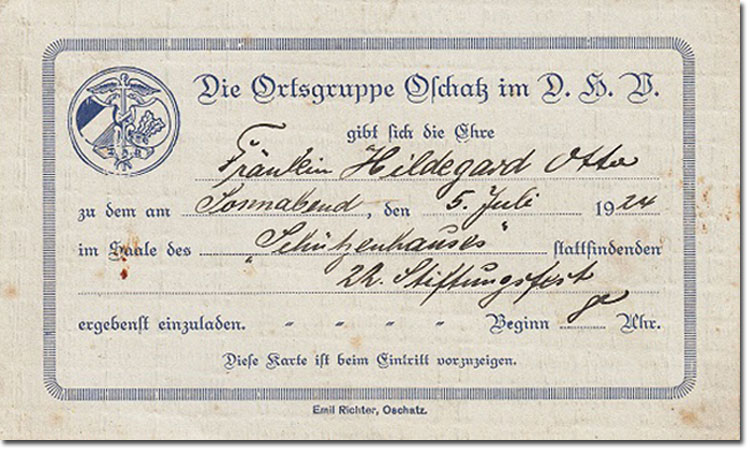 Die Ortsgruppe Oschatz im D. H. V.
gibt sich die Ehre
Fräulein Hildegard Otto
zu dem am Sonnabend, den 5. Juli 1924
im Saale des „Schützenhauses" stattfindenden
22. Stiftungsfest
ergebenst einzuladen. " " " " Beginn 8 Uhr.
Diese Karte ist beim Eintritt vorzuzeigen.
Emil Richter, Oschatz.